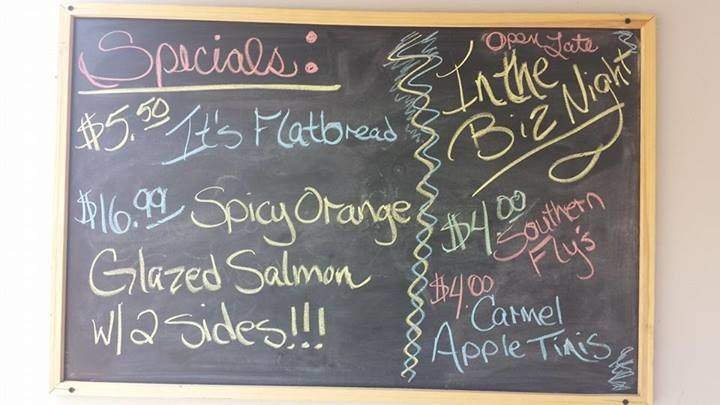 Specials:
$5.50 It's Flatbread
$16.99 Spicy Orange
Glazed Salmon
w/2 sides!!!
Open Late
In the
Biz Night
$4.00 Southern
Fly's
$4.00 Carmel
Apple Tinis